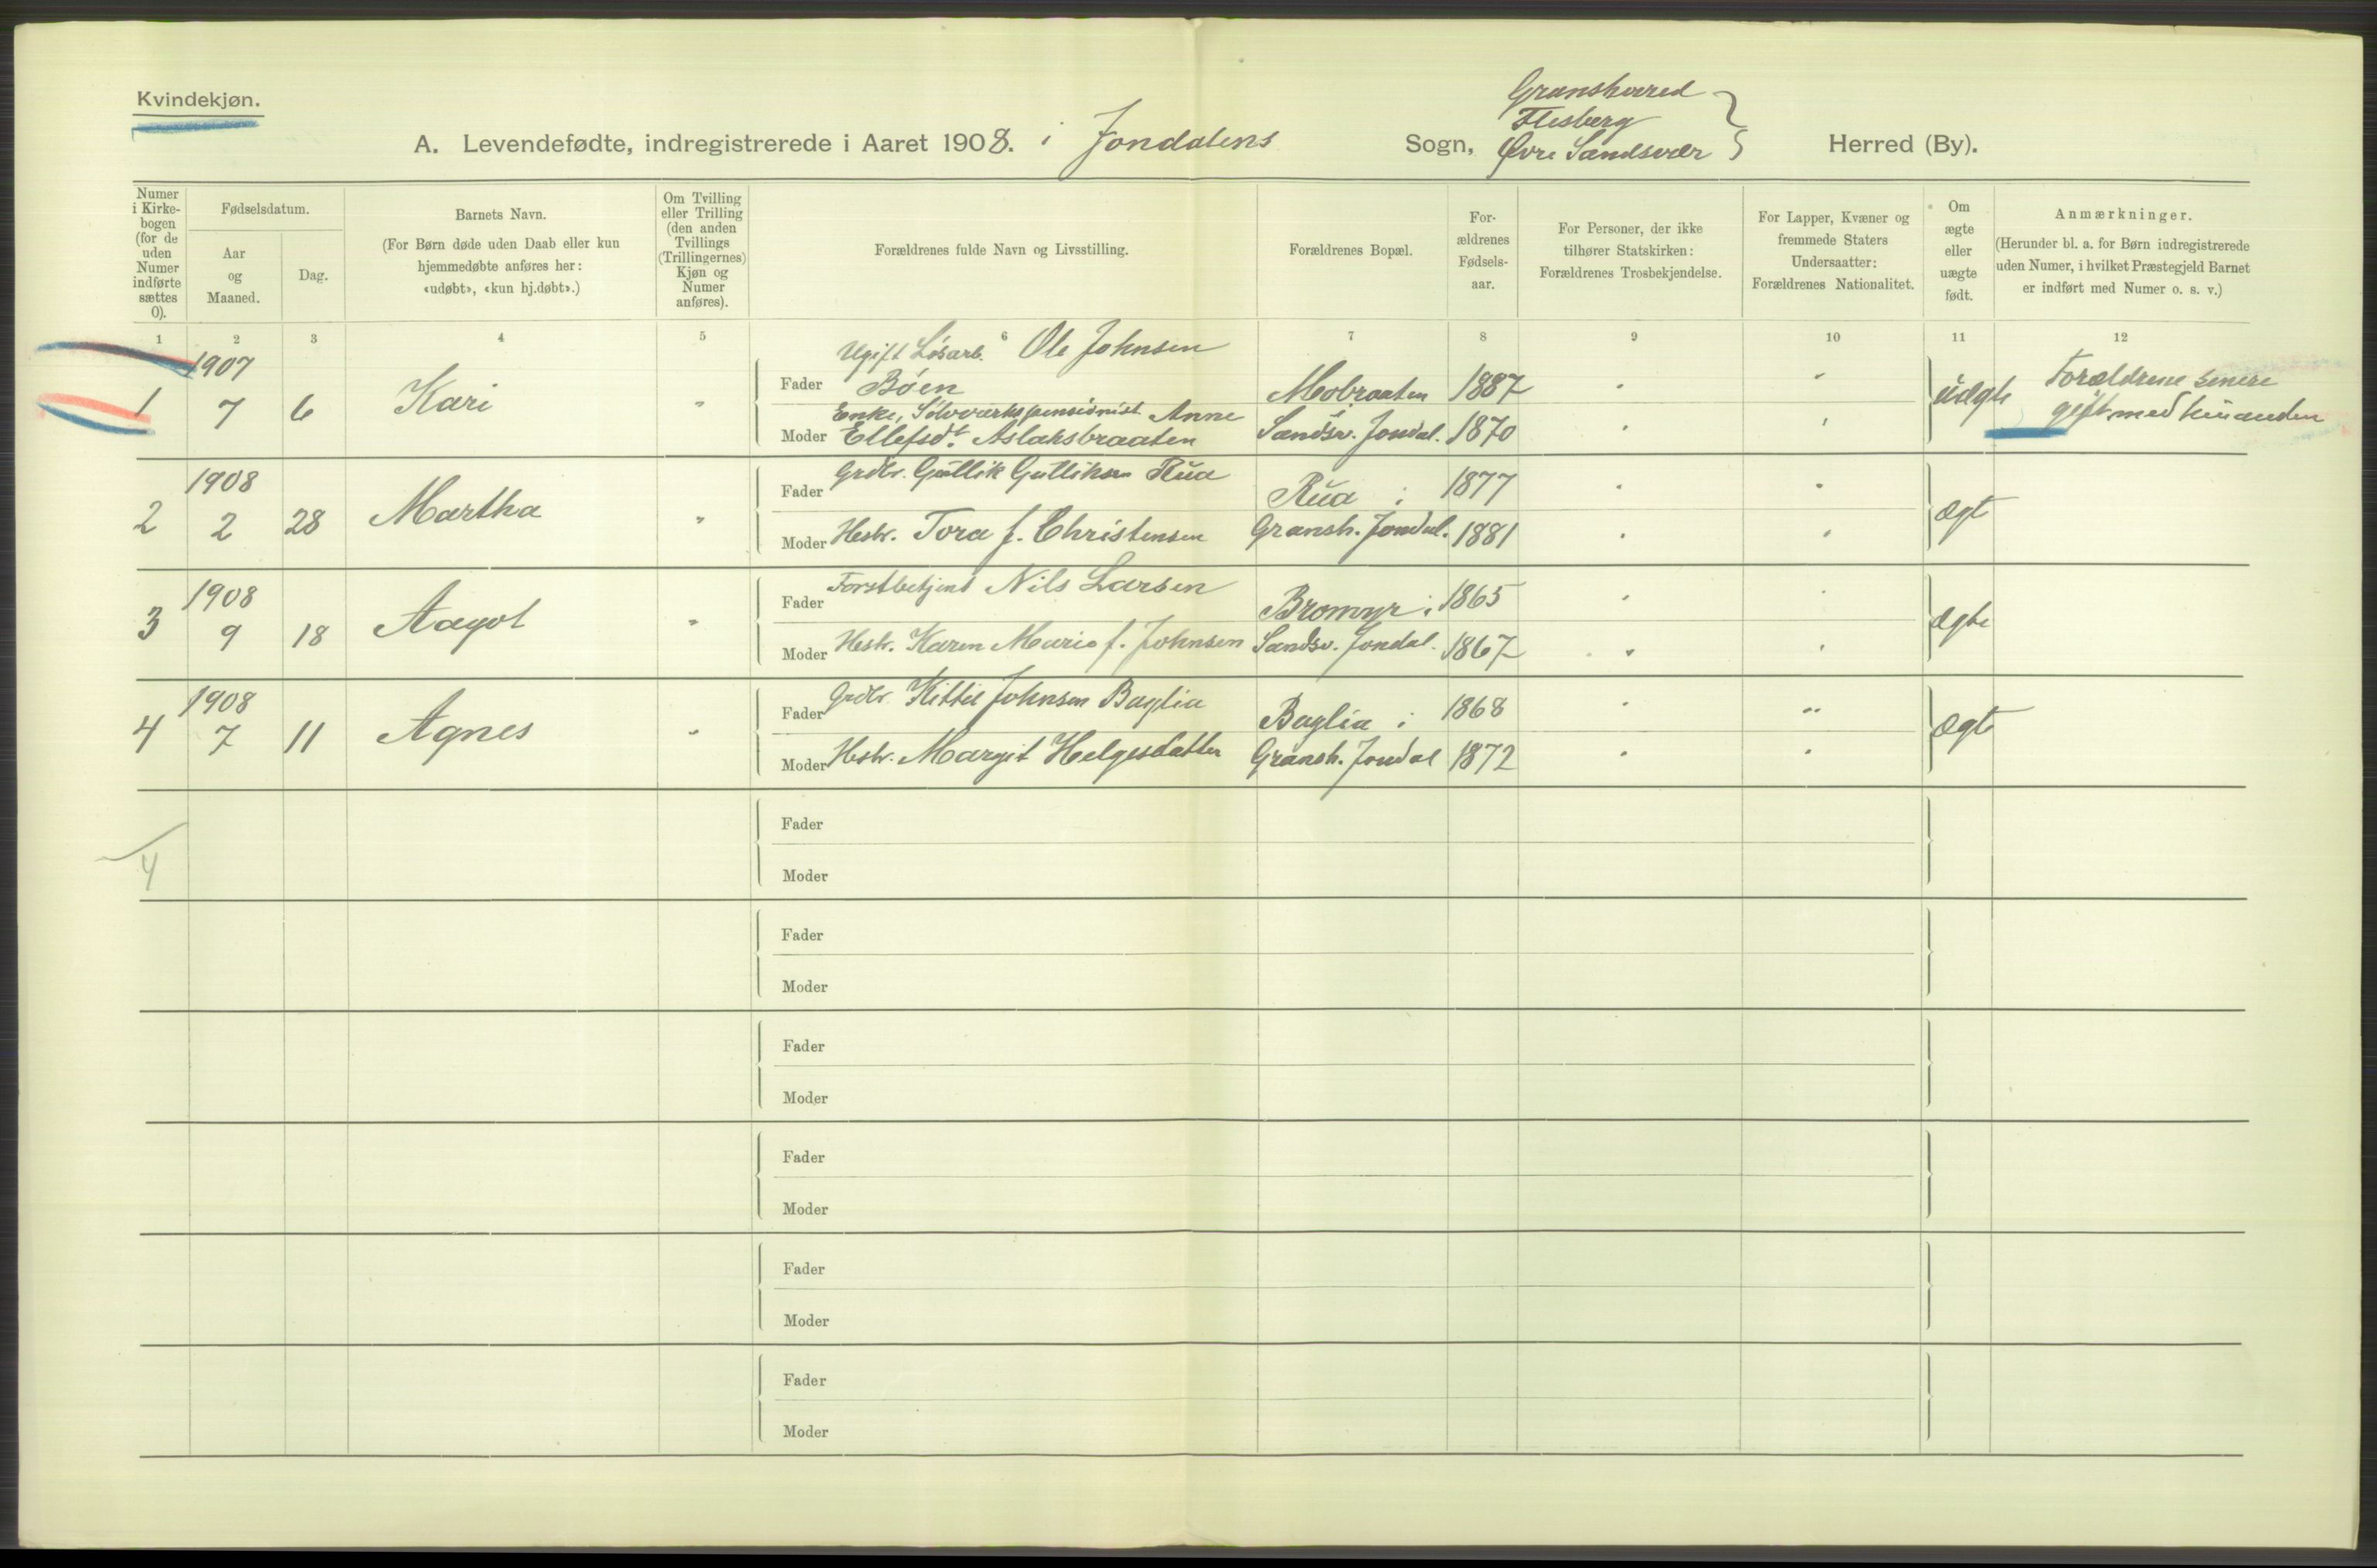 Kvindekjøn.
A. Levendefødte, indregistrerede i Aaret 1908. i Jondalens Sogn, Gransherred
Flesberg
Øvre Sandsvær Herred (By).
Numer i Kirke-bogen (for de uden Numer indførte sættes 0).
Fødselsdatum.
Aar og Maaned.
Dag.
Barnets Navn.
(For Børn døde uden Daab eller kun hjemmedøbte anføres her: «udøbt», «kun hj.døbt».)
Om Tvilling eller Trilling (den anden Tvillings (Trillingernes) Kjøn og Numer anføres).
Forældrenes fulde Navn og Livsstilling.
Forældrenes Bopæl.
For-ældrenes Fødsels-aar.
For Personer, der ikke tilhører Statskirken: Forældrenes Trosbekjendelse.
For Lapper, Kvæner og fremmede Staters Undersaatter: Forældrenes Nationalitet.
Om ægte eller uægte født.
Anmærkninger.
(Herunder bl. a. for Børn indregistrerede uden Numer, i hvilket Præstegjeld Barnet er indført med Numer o. s. v.)
1 2 3 4 5 6 7 8 9 10 11 12
1 1907 7 6 Kari "
Fader Ugift Løsarb. Ole Johnsen
Bøen Mobraaten 1887 uægte Forældrene senere
gift med hinanden
Moder Enke, Sølvværkspensionist Anne
Ellefsdt. Aslaksbraaten Sandsv. Jondal. 1870
2 1908 2 28 Martha "
Fader Grdbr. Gullik Gulliksen Rua Rua i 1877 ægte
Moder Hustr. Tora f. Christensen Gransh. Jondal. 1881
3 1908 9 18 Aagot "
Fader Forstbetjent Nils Larsen Bromyr i 1865 ægte
Moder Hustr. Karen Marie f. Johnsen Sandsv. Jondal. 1867
4 1908 7 11 Agnes "
Fader Grdbr. Kittil Johnsen Baglia Baglia i 1868 ægte
Moder Hustr. Margit Helgesdatter Gransh. Jondal 1872
4
Fader
Moder
Fader
Moder
Fader
Moder
Fader
Moder
Fader
Moder
Fader
Moder